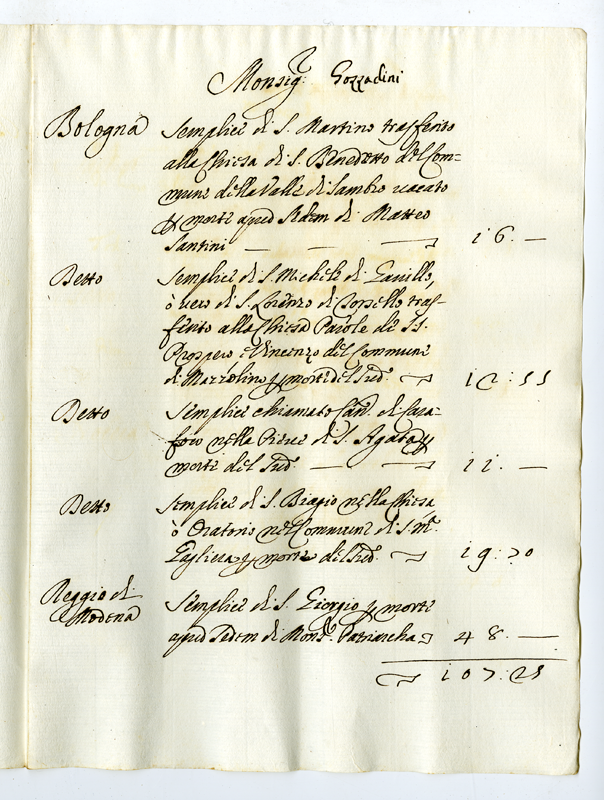 Monsig.r Gozzadini
Bologna Semplice di S. Martino trasferito
alla Chiesa di S. Benedetto del Com=
mune della Valle di Sambro vacato
p morte apud Sedem di Matteo
Santini — — — 16. —
Detto Semplice di S. Michele di
ò vero di S. Lorenzo di tras=
ferito alla Chiesa di S.S.
Prospero e Vincenzo del Commune
di Mazzolino p morte del Sud.o 12:55
Detto Semplice chiamato di
nella Pieve di S. Agata p
morte del Sud.o — — 11. —
Detto Semplice di S. Biagio nella Chiesa
ò Oratorio nel Commune di S. M.a
p morte del Sud.o 19:70
Reggio di
Modena Semplice di S. Giorgio p morte
apud Sedem di Mons.r Patriarcha 48. —
107:25